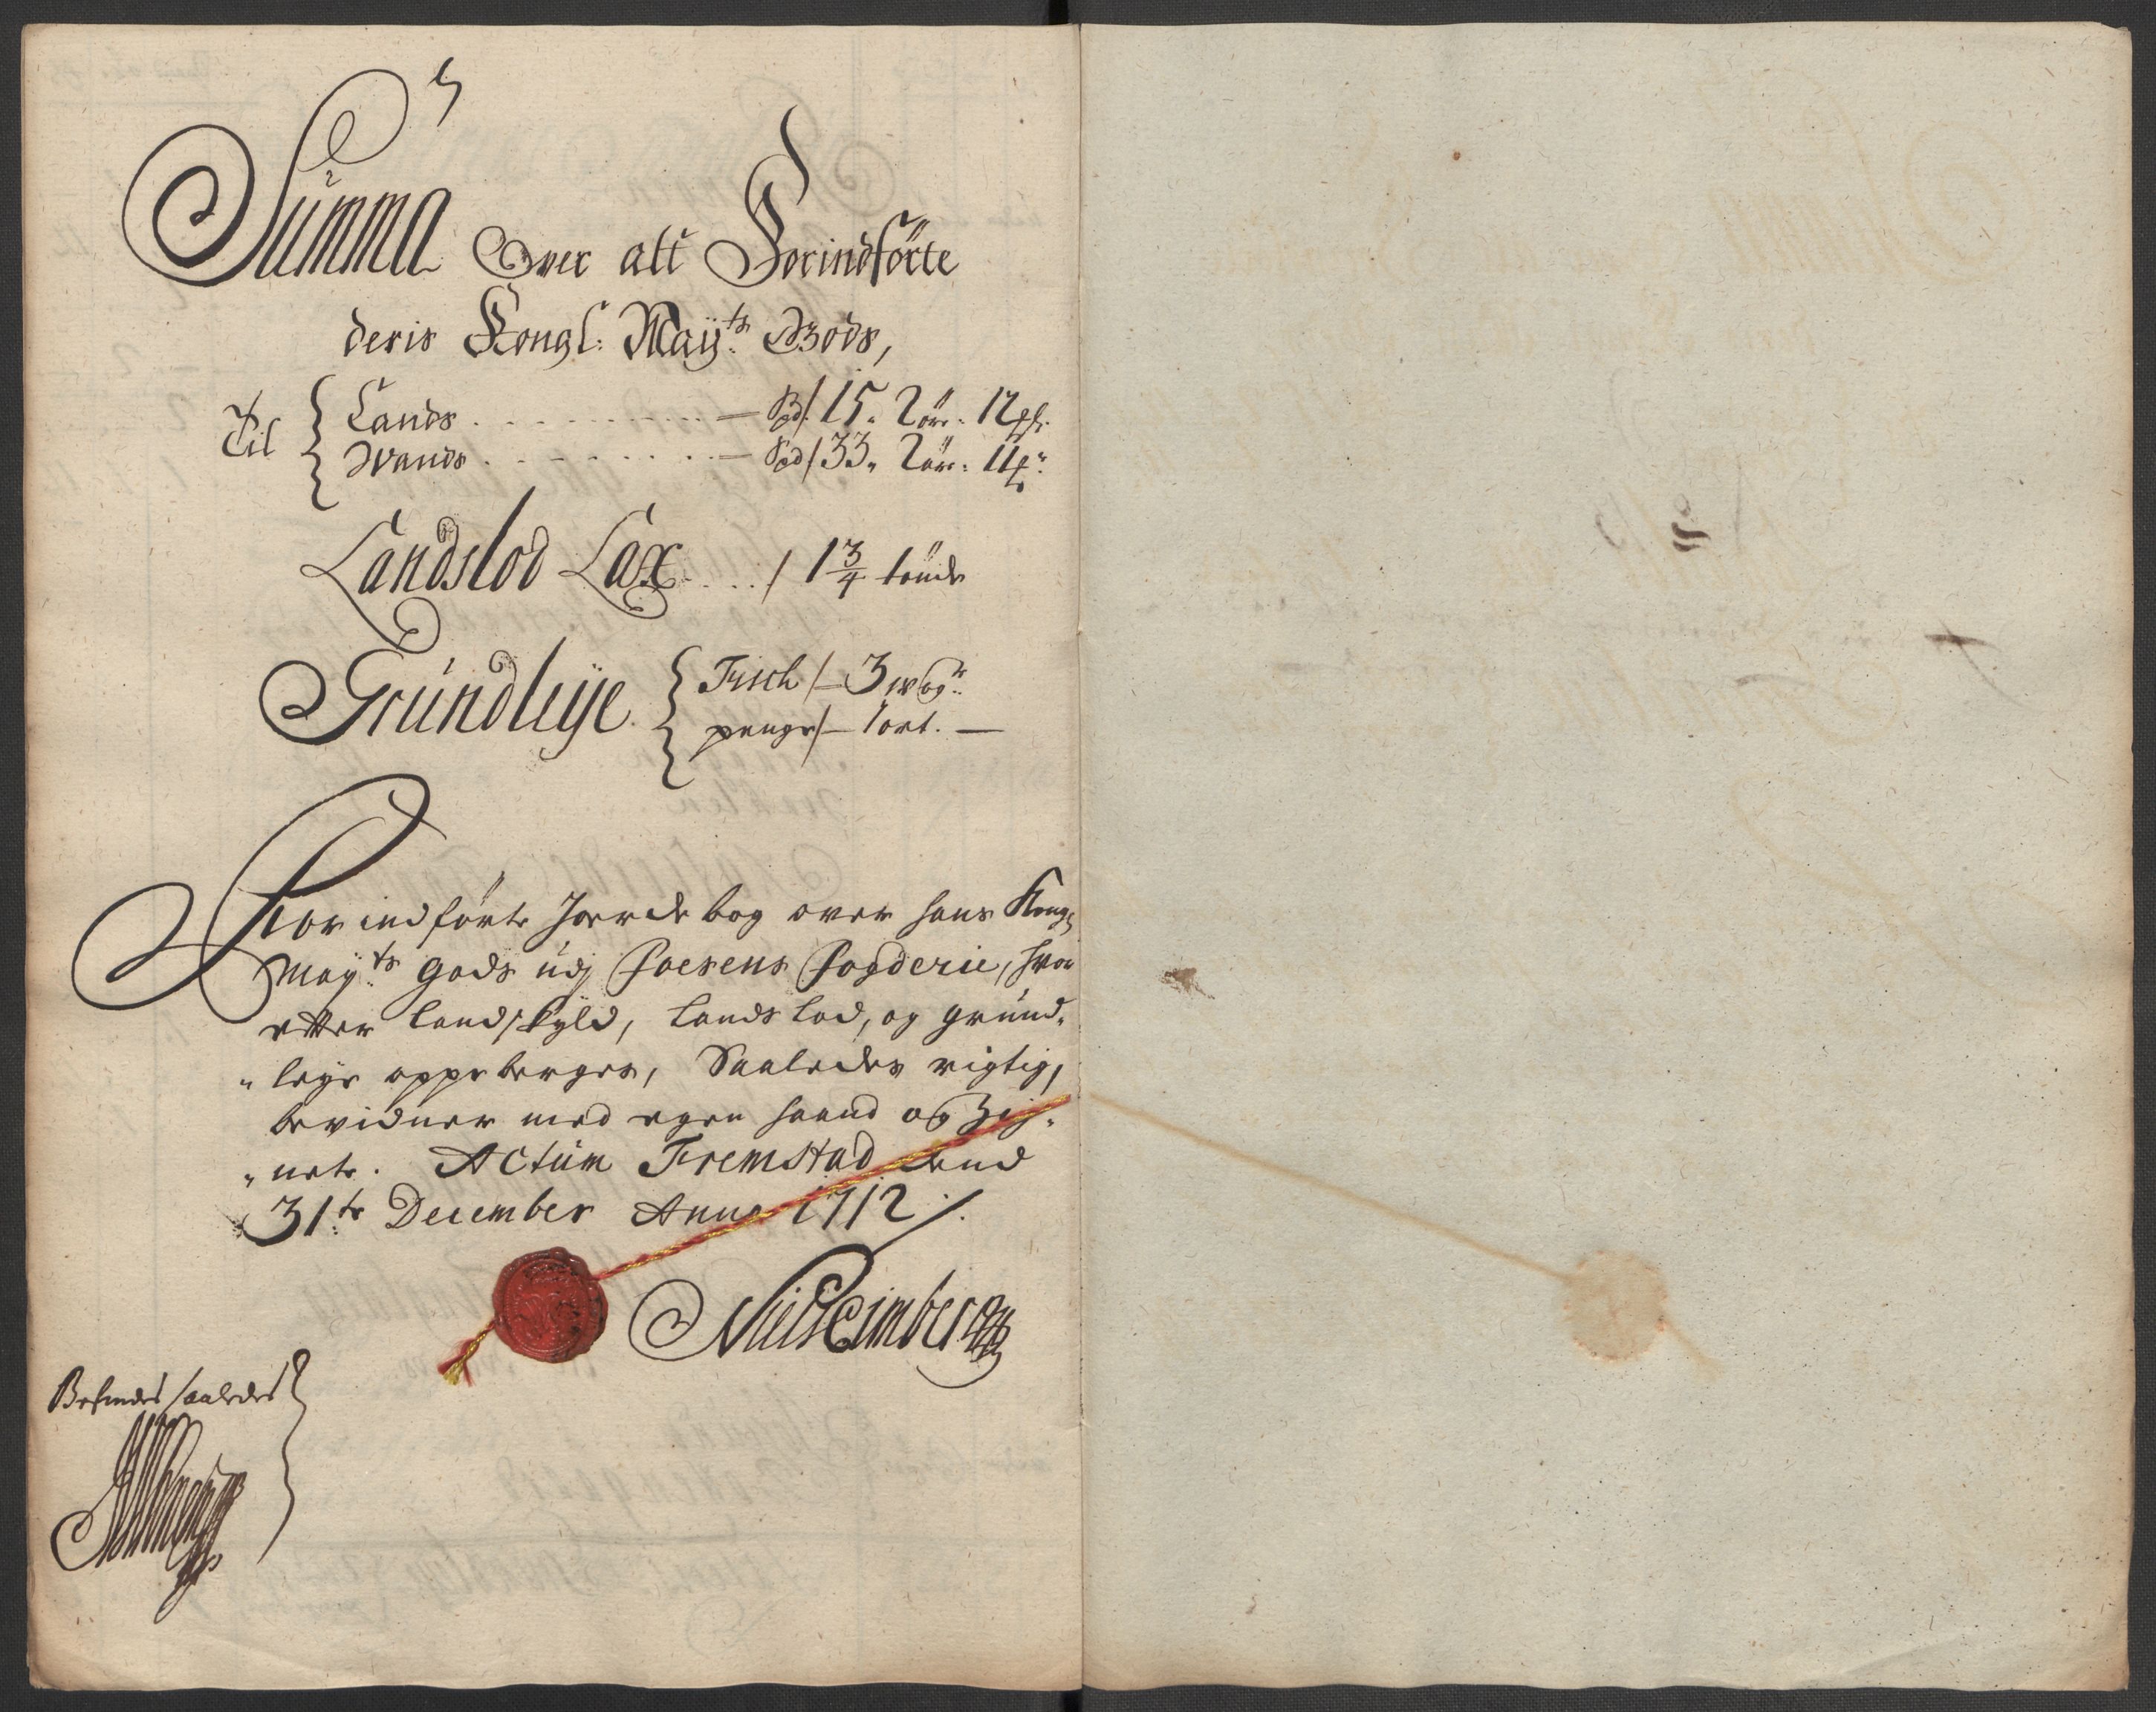 Summa Over alt Forindförte
deris Kongl: Mayts: Gods,
Til
Lands - Spd/ 15. 2 ör. 12
Wands - Spd/ 33. 2 ör. 11
Landslod Lax /. 1 3/4 tönde
Grundleije
Fisch /- 3 wog:
penge /- 1 ort. -
Forindförte Jorde bog over hans Kongl:
Mayts: Gods udj Foesens Fogderie, hvor
efter landskyld, Landslod, og grund-
leye oppeberges, Saaledes rigtig,
bevidner med egen haand og Zig-
nete. Actum Fremstad Dend
31te December Anno 1712 /.
Befindes saaledes